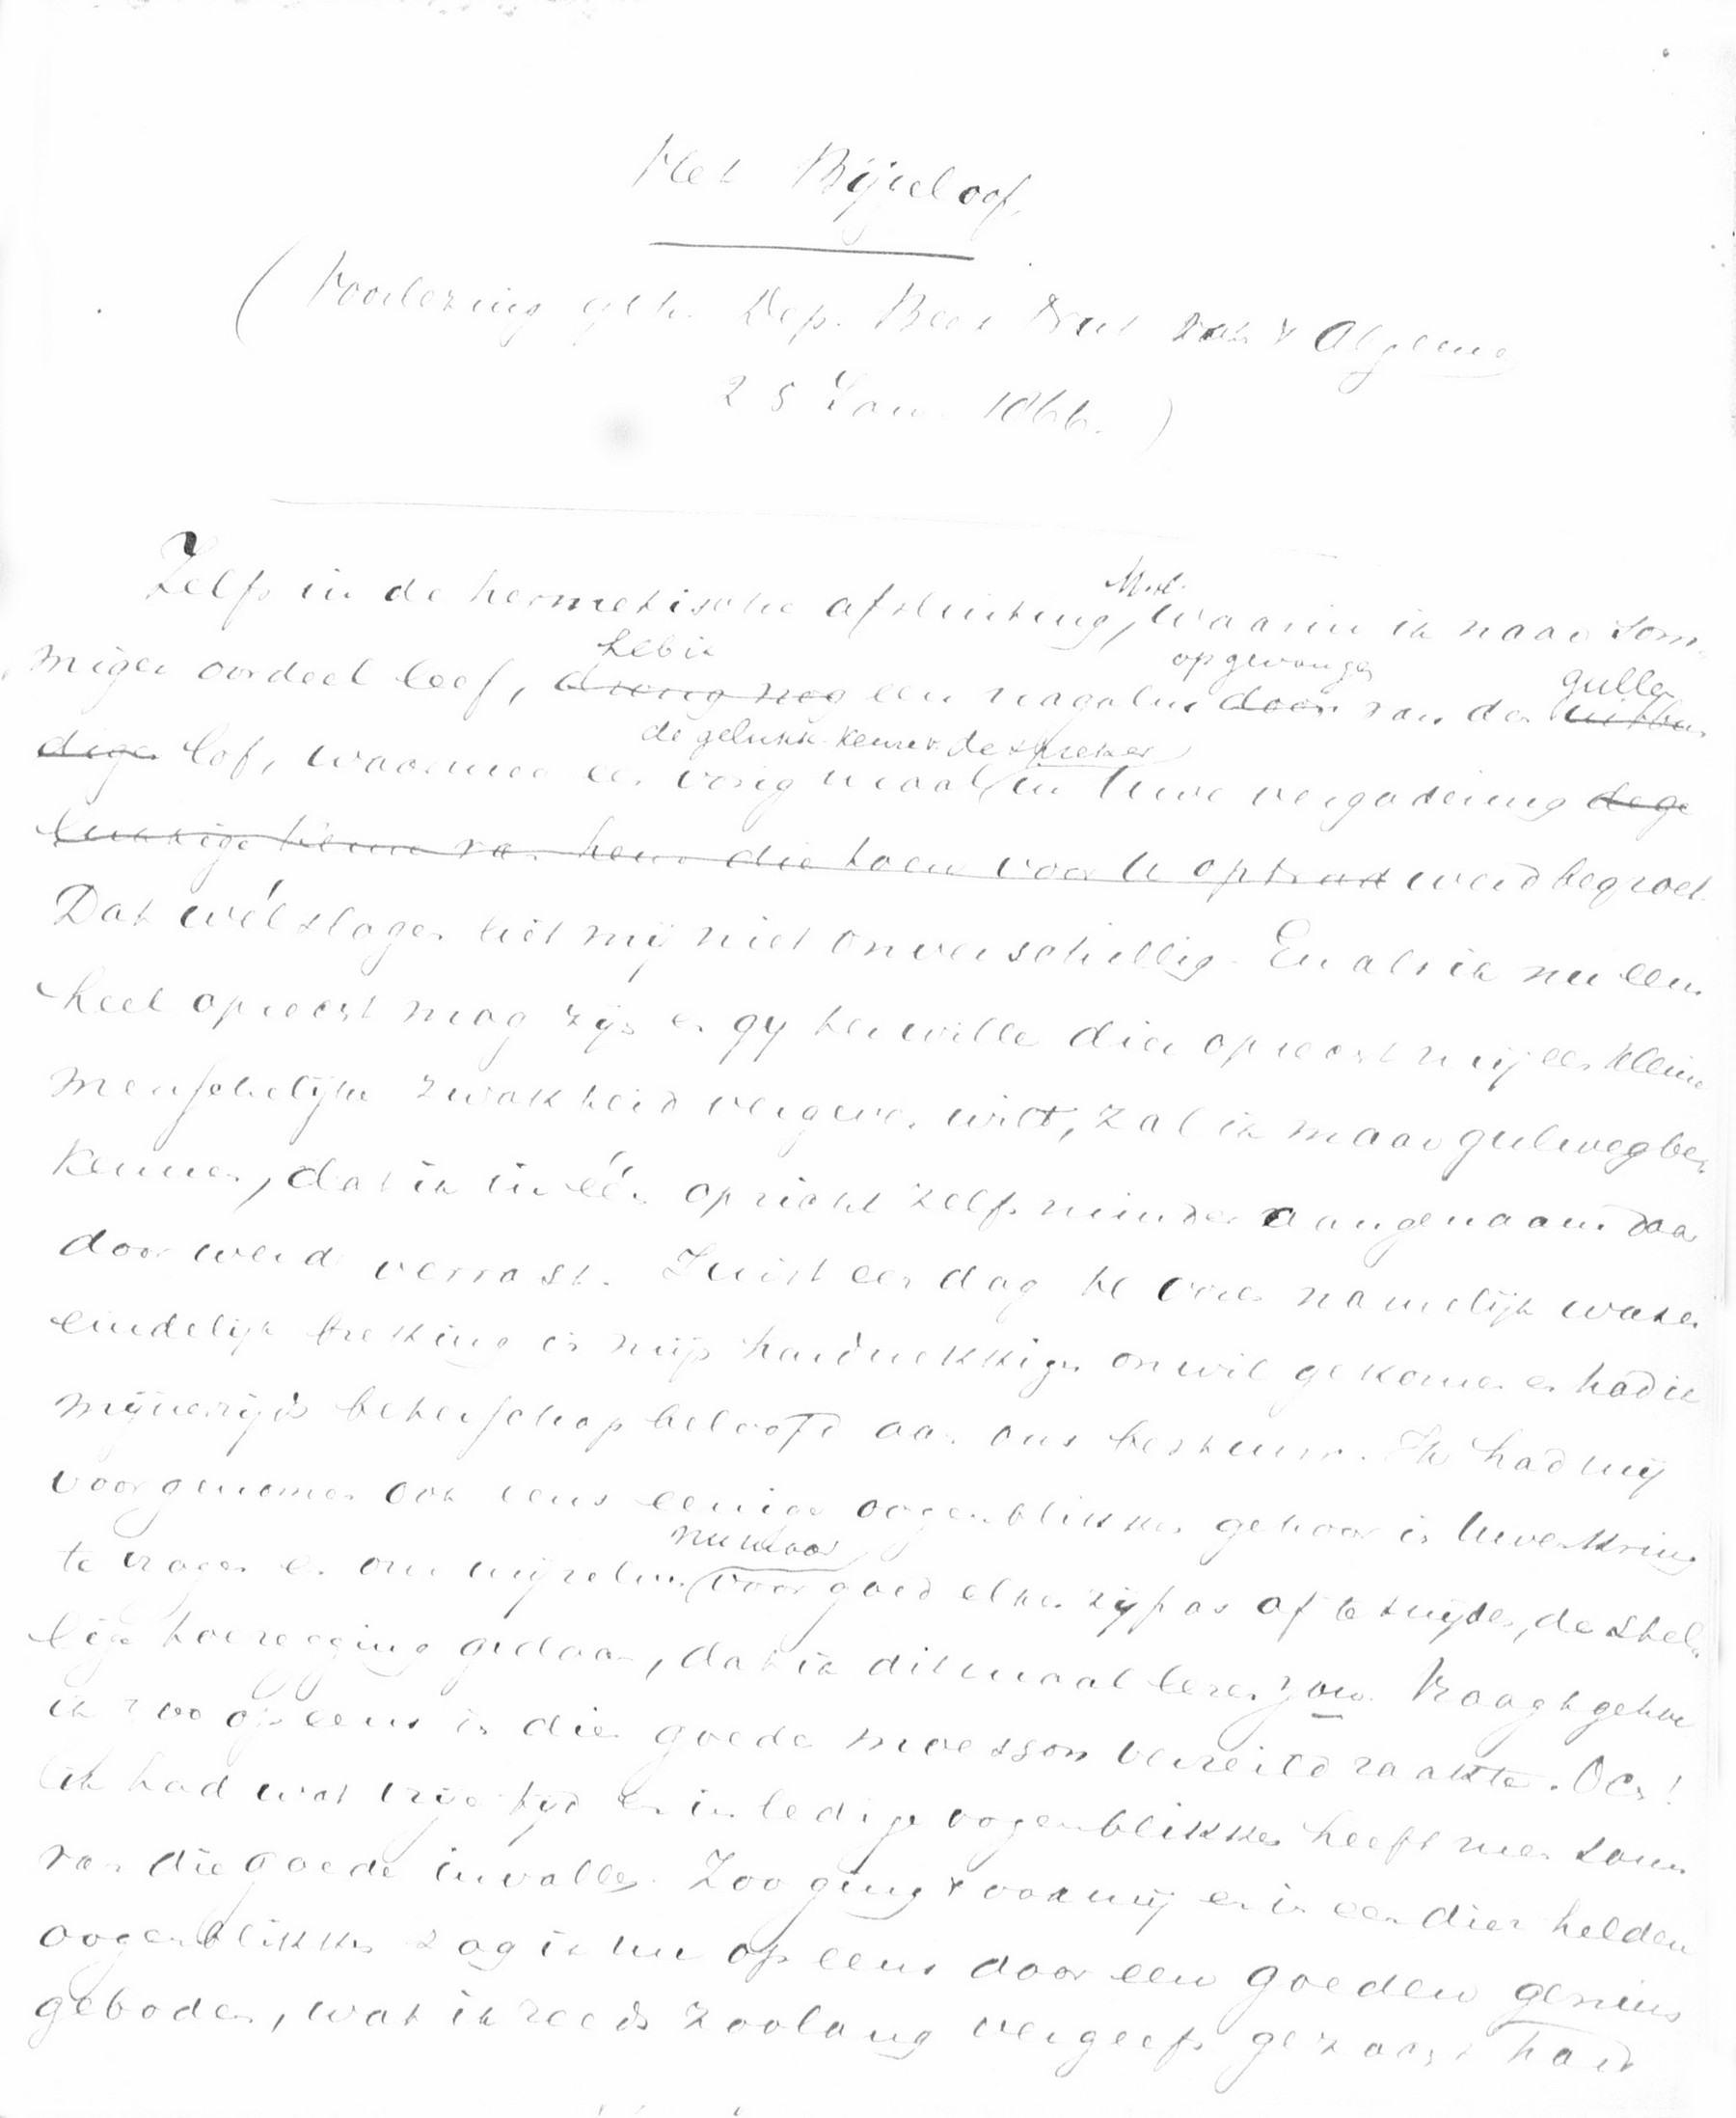 Het Bijgeloof.
(Voorlezing geh. Dep. Beest Nut van 't Algemeen
25 Jan. 1866.)
Zelfs in de hermetische afsluiting, M.H. waarin ik naar som-
miger oordeel leef, drong nog heb ik een nagalm door opgevangen van den uitbun- gullen
digen lof, waarmee een vorig maal de gelukk. keuze v. de spreker in Uwe vergadering de ge
lukkige keuze van hem die toen voor U optrad werd begroet.
Dat wélslagen liet mij niet onverschillig. En als ik nu eens
heel oprecht mag zijn en gy ter wille dier oprechth. mij een kleine
menschelijke zwakheid vergeven wilt, zal ik maar gulweg be-
kennen, dat ik in één opzicht zelfs minder aangenaam daar
door werd verrast. Juist een dag te voren namelijk was er
eindelijk breking in mijn hardnekkigen onwil gekomen en had ik
mijnerzijds beterschap beloofd aan ons bestuur. Ik had mij
voorgenomen ook eens eenige oogenblikken gehoor in Uwen kring
te vragen en om mijzelven nu maar voor goed elken zijpas af te snijden, de stel-
lige toezegging gedaan, dat ik ditmaal lezen zou. Vraagt ge hoe
ik zoo opeens in die goede moesson verzeild raakte. Och!
ik had wat vrije tijd en in ledige oogenblikken heeft men soms
van die goede invallen. Zoo ging 't ook mij en in een dier heldere
oogenblikken zag ik me op eens door een goeden genius
geboden, wat ik reeds zoolang vergeefs gezocht had